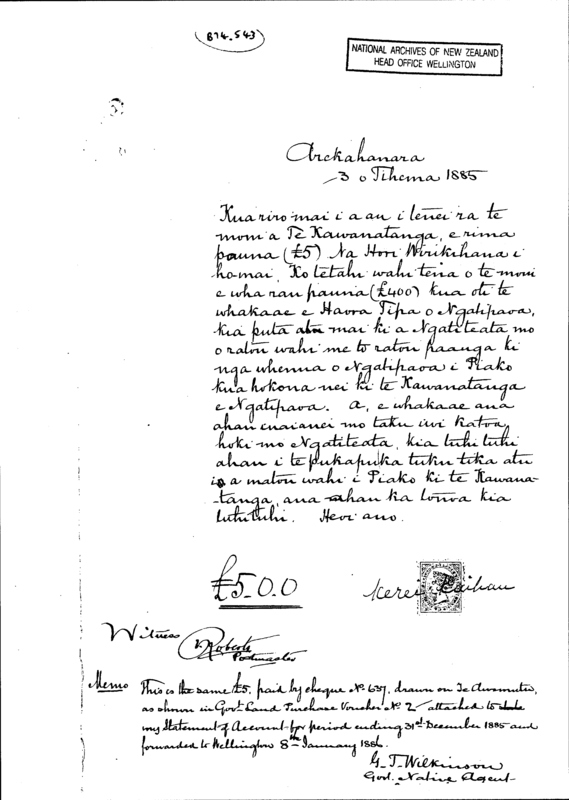 B74.543
NATIONAL ARCHIVES OF NEW ZEALAND
HEAD OFFICE WELLINGTON
Arekahanara
3 o Tihema 1885
Kua riro mai i a au i tenei ra te
moni a Te Kawanatanga, e rima
pauna (£5) Na Hori Wirikihana i
homai, Ko tetahi wahi tena o te moni
e wha rau pauna (£400) kua oti te
whakaae e Haora Tipa o Ngatipaoa,
kia puta atu mai ki a Ngatiteata mo
o ratou wahi me to ratou paanga ki
nga whenua o Ngatipaoa i Piako
kua hokona nei ki te Kawanatanga
e Ngatipaoa. A, e whakaae ana
ahau enaianei mo taku iwi katoa
hoki mo Ngatiteata, kia tuhi tuhi
ahau i te pukapuka tuku tika atu
i a matou wahi i Piako ki te Kawana-
-tanga, ana ahau ka tonoa kia
tuhituhi. Heoi ano.
£5.0.0
Kerei Kaihau
Witness
Roberts
Postmaster
Memo This is the same £5. paid by cheque No 637, drawn on Te Awamutu,
as shown in Govt. Land Purchase Voucher No 2 attached to
my Statement of Account for period ending 31st December 1885 and
forwarded to Wellington 8th January 1886.
G. T. Wilkinson
Govt. Native Agent